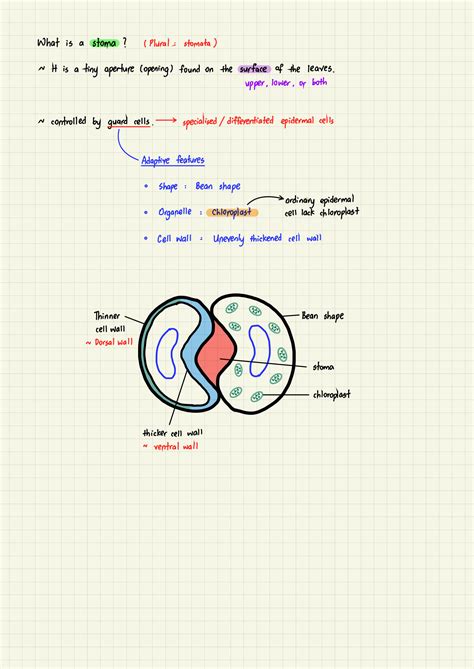 What is a stoma ? (Plural : stomata)
~ It is a tiny aperture (opening) found on the surface of the leaves.
upper, lower, or both
~ controlled by guard cells. → specialised / differentiated epidermal cells
Adaptive features
• Shape : Bean shape
• Organelle : Chloroplast → ordinary epidermal
cell lack chloroplast
• Cell wall : Unevenly thickened cell wall
Thinner
cell wall
~ Dorsal wall
Bean shape
stoma
chloroplast
thicker cell wall
~ ventral wall